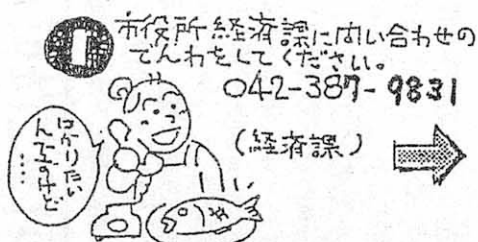 市役所経済課に問い合わせの
でんわをしてください。
042-387-9831
(経済課)
はかりたい
んですけど
・・・・